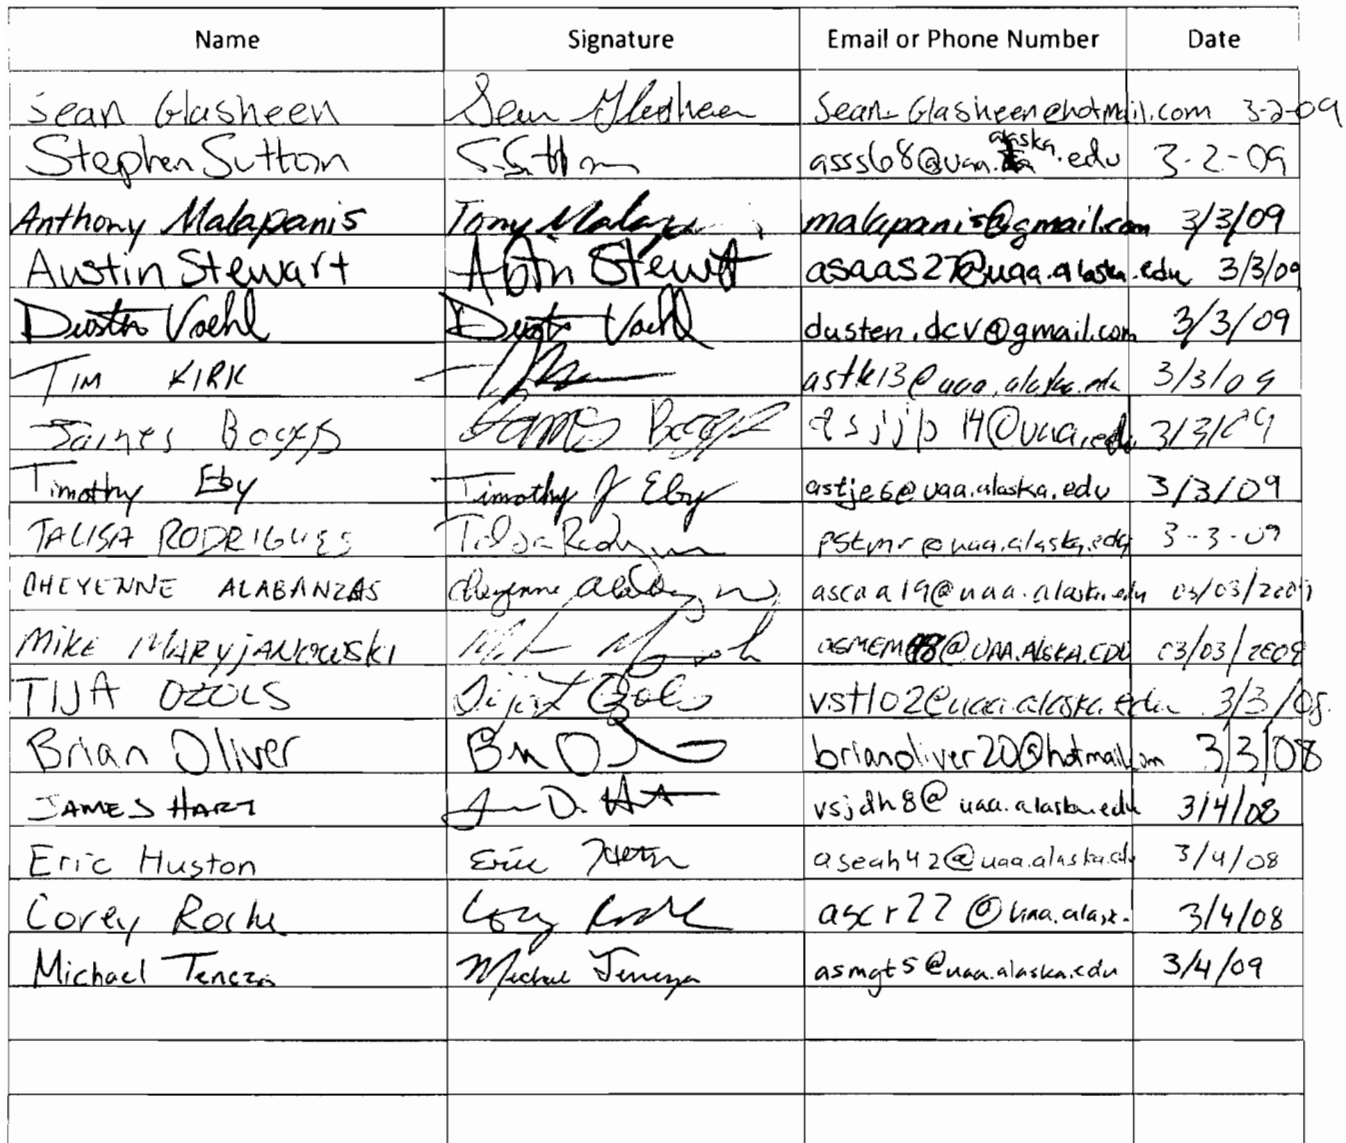 Name Signature Email or Phone Number Date
Sean Glasheen Sean Glasheen Sean_Glasheen@hotmail.com 3-2-09
Stephen Sutton S. Sutton asss68@uaa.alaska.edu 3-2-09
Anthony Malapanis Tony malapanis@gmail.com 3/3/09
Austin Stewart Austin Stewart asaas27@uaa.alaska.edu 3/3/09
Dustin Voehl Dustin Voehl dusten.dcv@gmail.com 3/3/09
TIM KIRK astk13@uaa.alaska.edu 3/3/09
James Boggs James Boggs 3/3/09
Timothy Eby Timothy J Eby astje6@uaa.alaska.edu 3/3/09
TALISA RODRIGUES pstmr@uaa.alaska.edu 3-3-09
CHEYENNE ALABANZAS Cheyenne ascaa19@uaa.alaska.edu 03/03/2009
MIKE MARYJANOWSKI @UAA.ALSKA.EDU 03/03/2009
TIJA OZOLS Tija Ozols vstl02@uaa.alaska.edu 3/3/08.
Brian Oliver brianoliver20@hotmail.com 3/3/08
JAMES HART vsjdh8@uaa.alaska.edu 3/4/08
Eric Huston Eric aseah42@uaa.alaska.edu 3/4/08
Corey Roche Corey Roche ascr22@uaa.alask. 3/4/08
Michael Tencza Michael Tencza asmgt5@uaa.alaska.edu 3/4/09